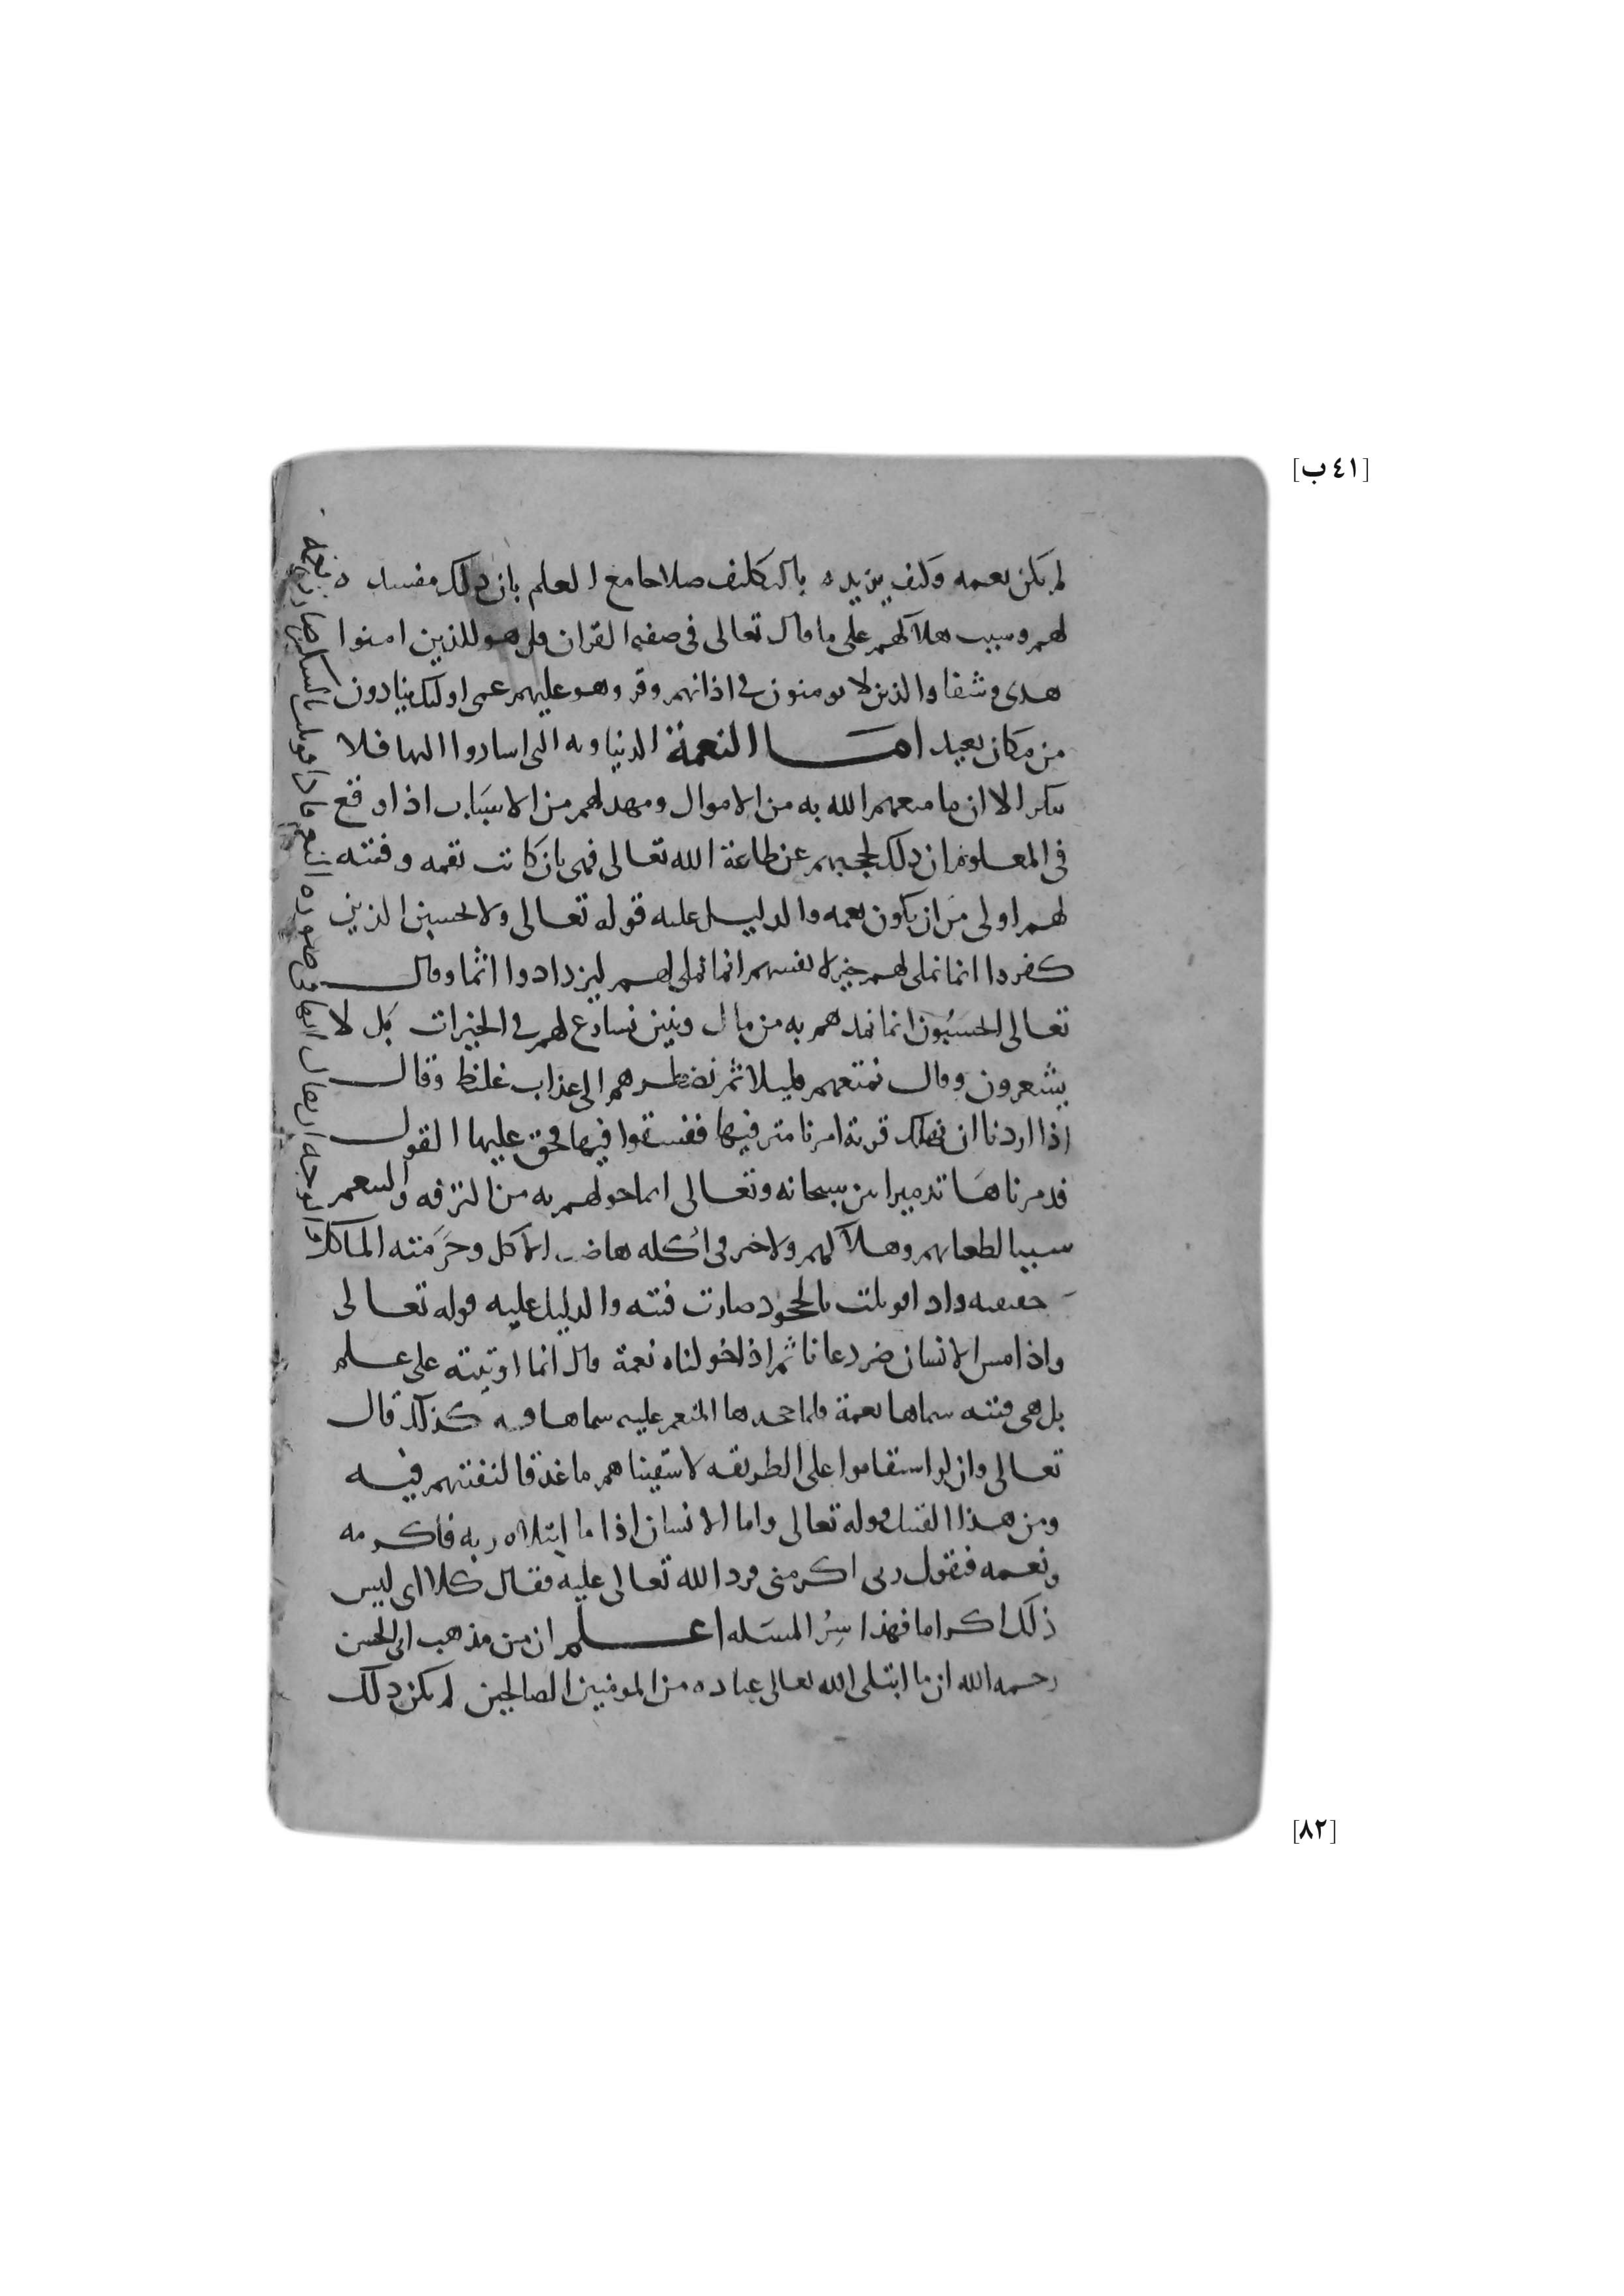 [٤١ب]
لم يكن نعمه وكيف يزيده بالتكليف صلاحا مع العلم بان ذلك مفسده
لهم وسبب هلاكهم على ما قال تعالى فى صفه القران قل هو للذين امنوا
هدى وشفا والذين لا يومنون في اذانهم وقر وهو عليهم عمى اوليك ينادون
من مكان بعيد اما النعمة الدنياويه التى اشاروا اليها فلا
ننكر الا ان ما متعهم الله به من الاموال ومهد لهم من الاسباب اذا وقع
فى المعلوم ان ذلك يحجبهم عن طاعة الله تعالى فهى بان كانت نقمه وفتنه
لهم اولى من ان يكون نعمه والدليل عليه قوله تعالى ولا يحسبن الذين
كفروا انما نملى لهم خير لانفسهم انما نملى لهم ليزدادوا اثما وقال
تعالى ايحسبون انما نمدهم به من مال وبنين نسارع لهم في الخيرات بل لا
يشعرون وقال نمتعهم قليلا ثم نضطرهم الى عذاب غليظ وقال
اذا اردنا ان نهلك قرية امرنا مترفيها ففسقوا فيها فحق عليها القول
فدمرناها تدميرا بين سبحانه وتعالى انما خولهم به من الترفه والتنعم
سببا لطغيانهم وهلاكهم ولا خير فى اكله هاضت الاكل وحرمته الماكل
حقيقه واذا قوبلت بالجحود صارت فتنه والدليل عليه قوله تعالى
واذا مس الانسان ضر دعانا ثم اذا خولناه نعمة قال انما اوتيته على علم
بل هى فتنه سماها نعمة فلما جحدها المنعم عليه سماها فتنه كذلك قال
تعالى وان لو استقاموا على الطريقه لاسقيناهم ما غدقا لنفتنهم فيه
ومن هذا القبيل قوله تعالى واما الانسان اذا ما ابتلاه ربه فاكرمه
ونعمه فيقول ربى اكرمنى فرد الله تعالى عليه فقال كلا اى ليس
ذلك اكراما فهذا سر المسئله اعلم ان من مذهب ابى الحسن
رحمه الله ان ما ابتلى الله تعالى عباده من المومنين الصالحين لم يكن ذلك
[٨٢]